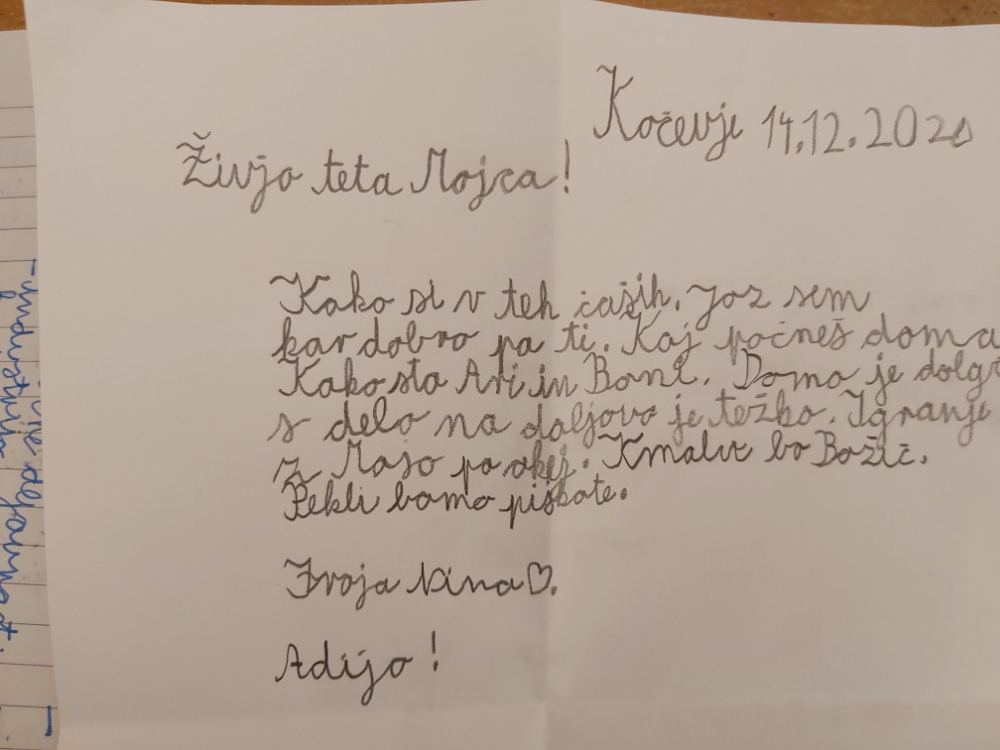 Kočevje 14.12.2020
Živjo teta Mojca!
Kako si v teh časih. Jaz sem
kar dobro pa ti. Kaj počneš doma
Kako sta Ari in Boni. Doma je dolg
s delo na daljavo je težko. Igranje
z Majo pa okej. Kmalu bo Božič.
Pekli bomo piškote.
Tvoja Nina♡.
Adijo!